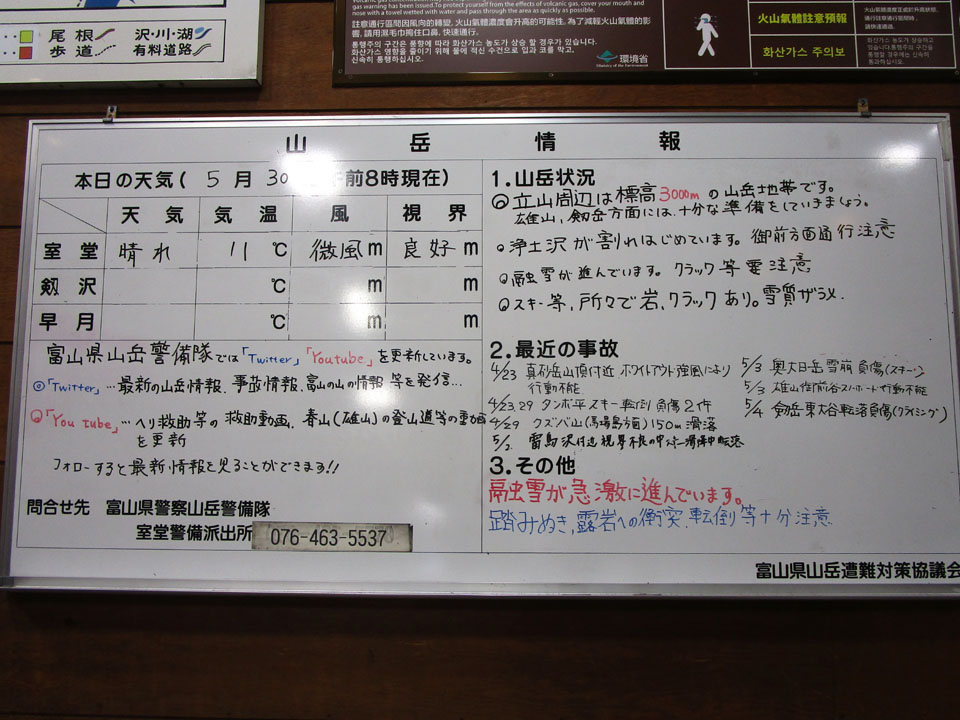 尾根 沢・川・湖
歩道 有料道路
gas warning has been issued. To protect yourself from the effects of volcanic gas, cover your mouth and
nose with a towel wetted with water and pass through the area as quickly as possible.
註意通行區間因風向的轉變,火山氣體濃度會升高的可能性,為了減輕火山氣體的影
響,請用濕毛巾掩住口鼻,快速通行。
통행주의 구간은 풍향에 따라 화산가스 농도가 상승 할 경우가 있습니다.
화산가스 영향을 줄이기 위해 물에 적신 수건으로 입과 코를 막고,
신속히 통행하십시오.
環境省
Ministry of the Environment
火山氣體註意預報
화산가스 주의보
山岳情報
本日の天気( 5月30 午前8時現在)
天気 気温 風 視界
室堂 晴れ 11℃ 微風m 良好m
剱沢 ℃ m m
早月 ℃ m m
富山県山岳警備隊では「Twitter」「Youtube」を更新しています。
◎「Twitter」…最新の山岳情報、事故情報、富山の山の情報 等を発信…
◎「You tube」…ヘリ救助等の救助動画、春山(雄山)の登山道等の動画
を更新
フォローすると最新情報を見ることができます!!
問合せ先 富山県警察山岳警備隊
室堂警備派出所 076-463-5537
1.山岳状況
◎立山周辺は標高3000mの山岳地帯です。
雄山、剱岳方面には、十分な準備をしていきましょう。
◎浄土沢が割れはじめています。御前方面通行注意
◎融雪が進んでいます。クラック等要注意
◎スキー等、所々で岩、クラックあり。雪質ザラメ.
2.最近の事故
4/23 真砂岳山頂付近 ホワイトアウト強風により
行動不能
4/23,29 タンボ平スキー転倒 負傷2件
4/29 クズバ山(馬場島方面)150m滑落
5/2 雷鳥沢付近視界不良の中スキー滑降中転落
5/3 奥大日岳雪崩 負傷(スキー)
5/3 雄山御前谷スノーボードで行動不能
5/4 剱岳東大谷転落負傷(クライミング)
3.その他
融雪が急激に進んでいます。
踏みぬき、露岩への衝突、転倒等十分注意
富山県山岳遭難対策協議会